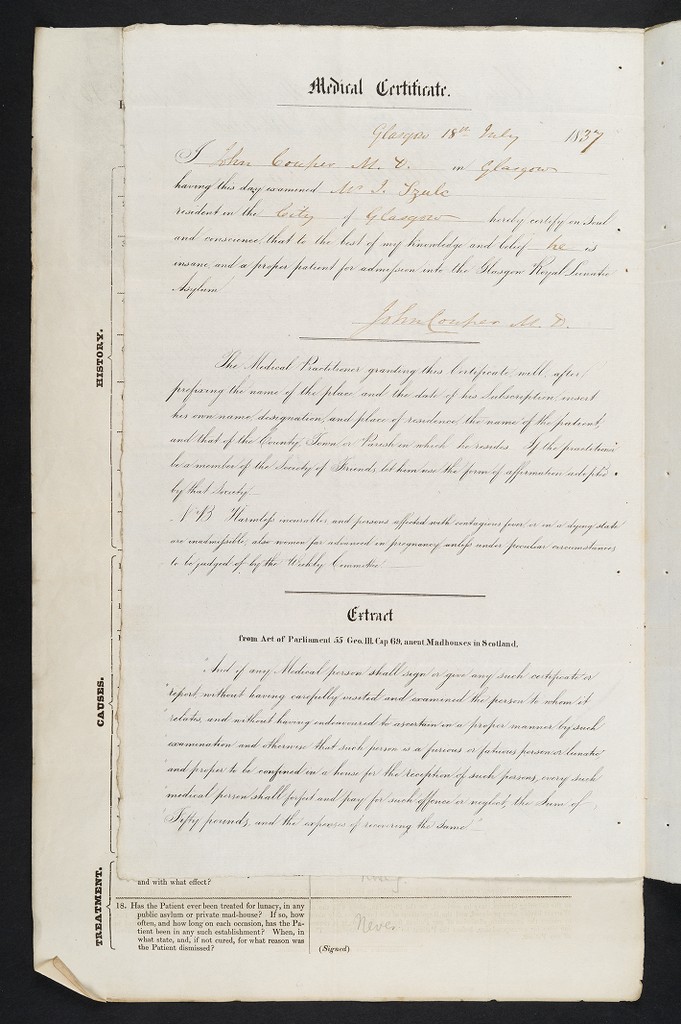 Medical Certificate.
Glasgow 18th July 1837
I John Couper M. D. in Glasgow
having this day examined Mr I. Szulc
resident in the City of Glasgow hereby certify on soul
and conscience, that to the best of my knowledge and belief he is
insane, and a proper patient for admission into the Glasgow Royal Lunatic
Asylum
John Couper M. D.
The Medical Practitioner granting this Certificate, will, after
prefixing the name of the place, and the date of his Subscription, insert
his own name, designation, and place of residence, the name of the patient,
and that of the County, Town or Parish in which he resides. If the practitioner
be a member of the Society of Friends, let him use the form of affirmation adopted
by that Society
N.B. Harmless incurables and persons affected with contagious fever or in a dying state
are inadmissible, also women far advanced in pregnancy, unless under peculiar circumstances
to be judged of by the Weekly Committee
Extract
from Act of Parliament 55 Geo. III. Cap 69, anent Madhouses in Scotland.
"And if any Medical person shall sign or give any such certificate or
"report without having carefully visited and examined the person to whom it
relates, and without having endeavoured to ascertain in a proper manner by such
examination and otherwise that such person is a furious or fatuous person or lunatic
"and proper to be confined in a house for the reception of such persons, every such
"medical person shall forfeit and pay for such offence or neglect, the Sum of
"Fifty pounds, and the expenses of recovering the same"
HISTORY.
CAUSES.
TREATMENT.
and with what effect?
18. Has the Patient ever been treated for lunacy, in any
public asylum or private mad-house? If so, how
often, and how long on each occasion, has the Pa-
tient been in any such establishment? When, in
what state, and, if not cured, for what reason was
the Patient dismissed?
Never
(Signed)